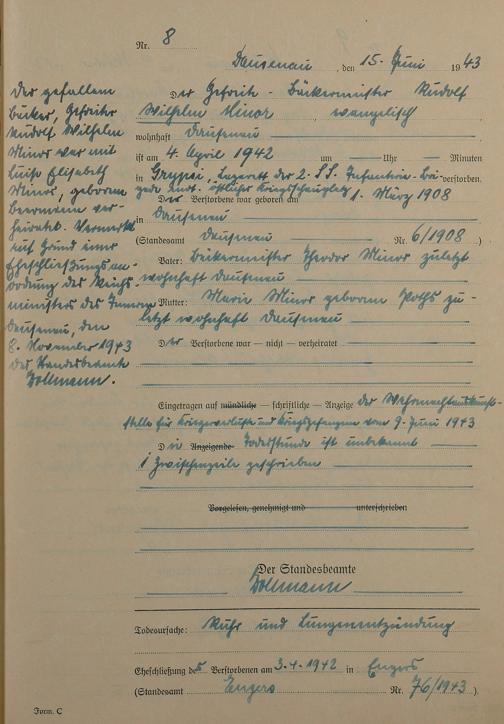 Nr. 8
Dausenau, den 15. Juni 1943
Der Gefreite - Bäckermeister Rudolf
Wilhelm Minor, evangelisch
wohnhaft Dausenau
ist am 4. April 1942 um Uhr Minuten
in Lazarett der 2. SS. Infanterie-Bri- verstorben.
gade östlicher Kriegsschauplatz
Der Verstorbene war geboren am 1. März 1908
in Dausenau
(Standesamt Dausenau Nr. 6/1908)
Vater: Bäckermeister Theodor Minor zuletzt
wohnhaft Dausenau
Mutter: Marie Minor geborene Poths zu-
letzt wohnhaft Dausenau
Der Verstorbene war — nicht — verheiratet
Eingetragen auf mündliche — schriftliche — Anzeige der Wehrmachtauskunft-
stelle für Kriegerverluste und Kriegsgefangene vom 9. Juni 1943
Die Anzeigende Todesstunde ist unbekannt
1 Zwischenzeile geschrieben
Vorgelesen, genehmigt und unterschrieben
Der Standesbeamte
Bollmann
Todesursache: Ruhr und Lungenentzündung
Eheschließung des Verstorbenen am 3.4.1942 in Engers
(Standesamt Engers Nr. 76/1943).
Form. C
Der gefallene
Bäcker, Gefreiter
Rudolf Wilhelm
Minor war mit
Luise Elisabeth
Minor, geborene
ver-
heiratet. Vermerkt
auf Grund einer
Eheschließungsan-
ordnung des Reichs-
ministers des Innern
Dausenau, den
8. November 1943
Der Standesbeamte
Bollmann.